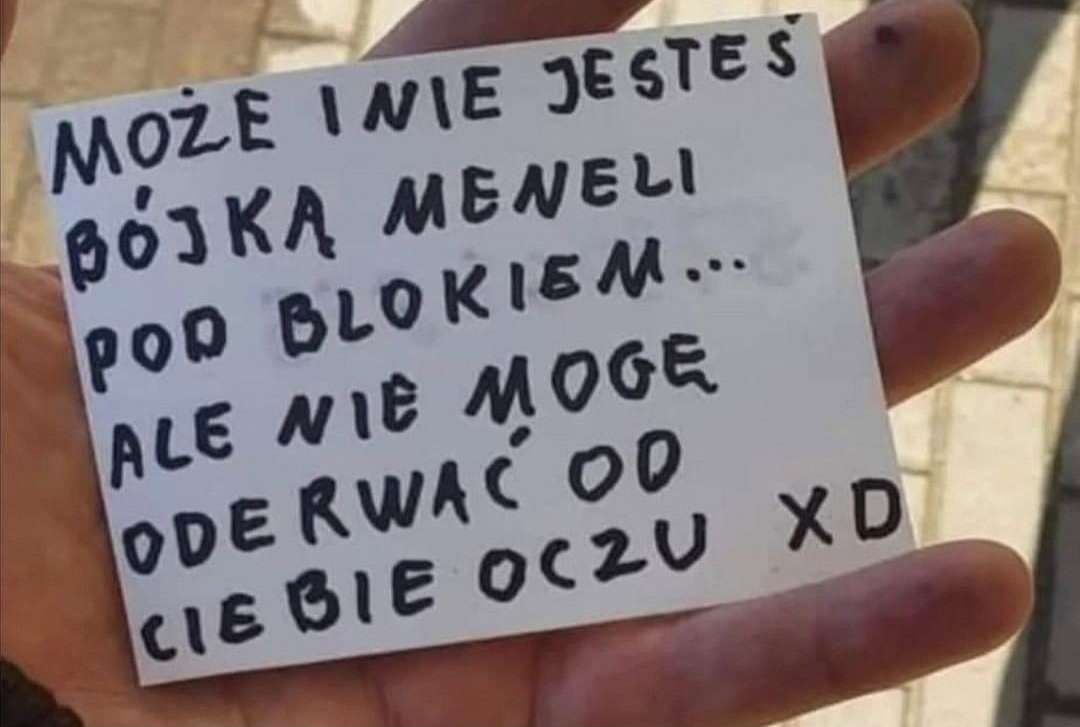 MOŻE I NIE JESTEŚ
BÓJKĄ MENELI
POD BLOKIEM...
ALE NIE MOGĘ
ODERWAĆ OD
CIEBIE OCZU XD